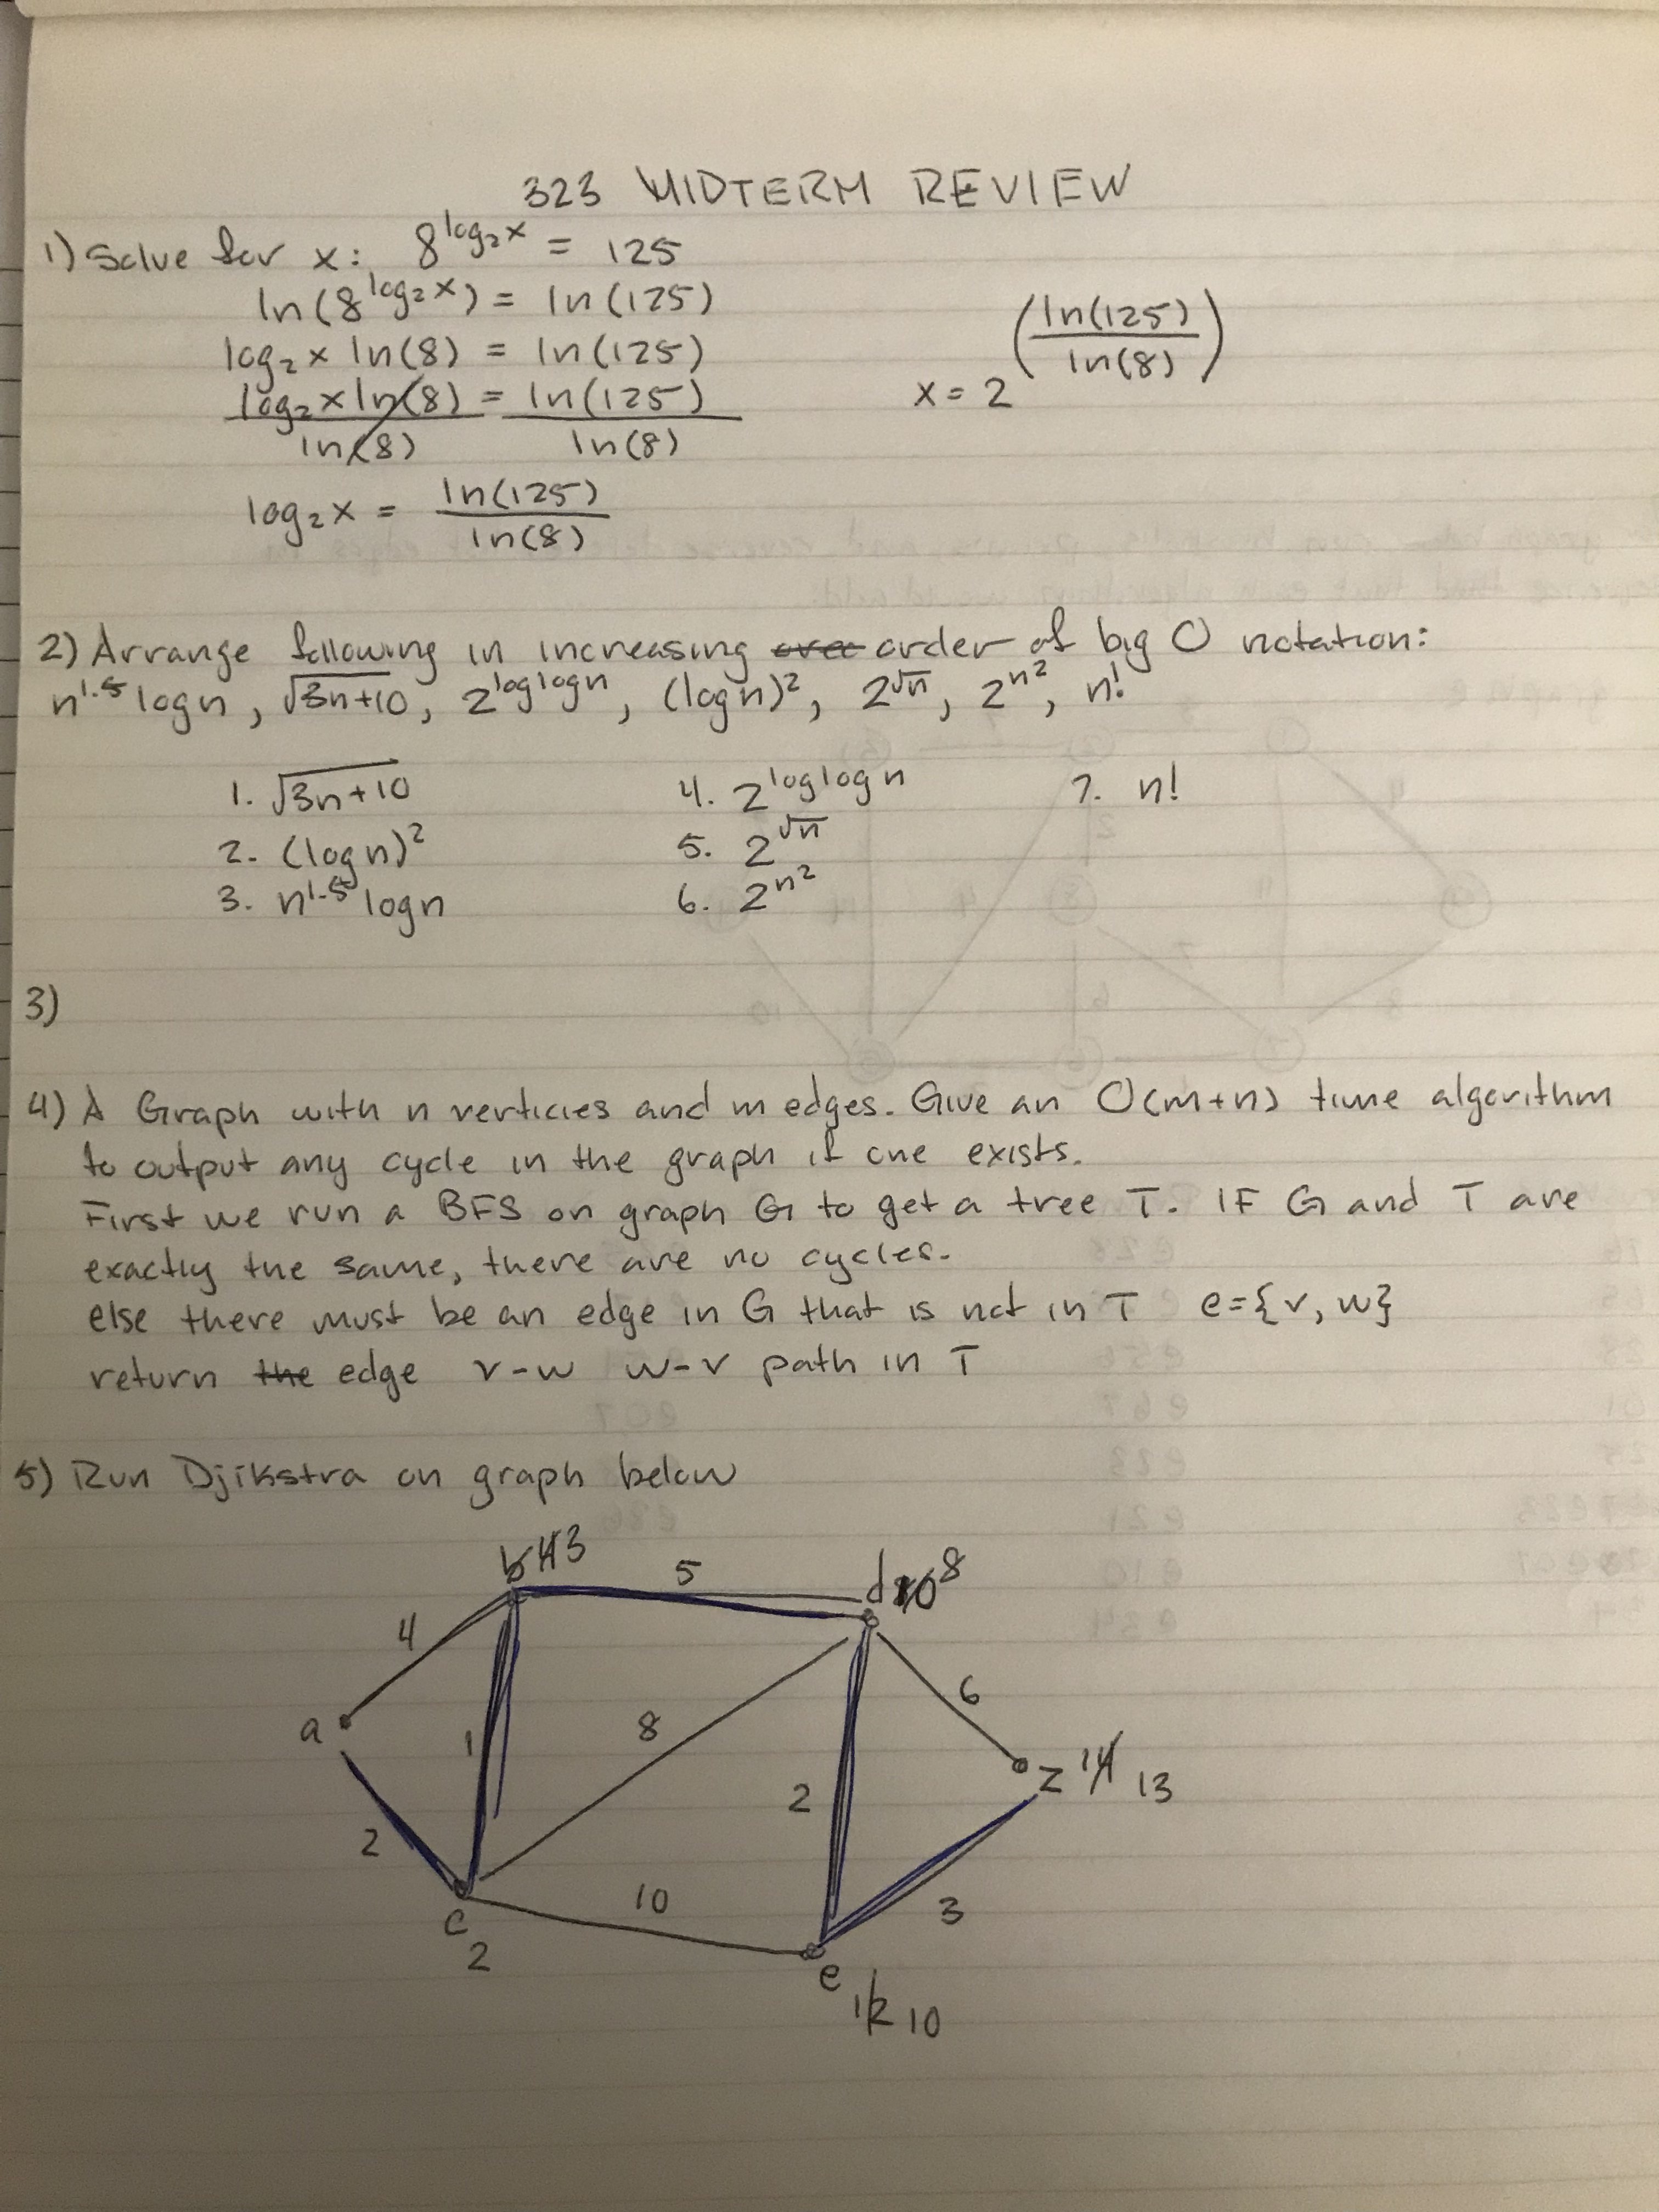 323 MIDTERM REVIEW
1) Solve for x: 8^log₂x = 125
ln(8^log₂x) = ln(125)
log₂x ln(8) = ln(125)
log₂x ln(8) = ln(125)
ln(8) ln(8)
log₂x = ln(125)
ln(8)
x = 2^(ln(125)/ln(8))
2) Arrange following in increasing order of big O notation:
n^1.5 logn, √3n+10, 2^loglogn, (logn)², 2^√n, 2^n², n!
1. √3n+10 4. 2^loglogn 7. n!
2. (logn)² 5. 2^√n
3. n^1.5 logn 6. 2^n²
3)
4) A Graph with n verticies and m edges. Give an O(m+n) time algorithm
to output any cycle in the graph if one exists.
First we run a BFS on graph G to get a tree T. IF G and T are
exactly the same, there are no cycles.
else there must be an edge in G that is not in T e={v, w}
return the edge v-w w-v path in T
5) Run Djikstra on graph below
b 4 3
5
d 10 8
4
6
a
1
8
2
z 14 13
2
10
3
c
2
e
12 10